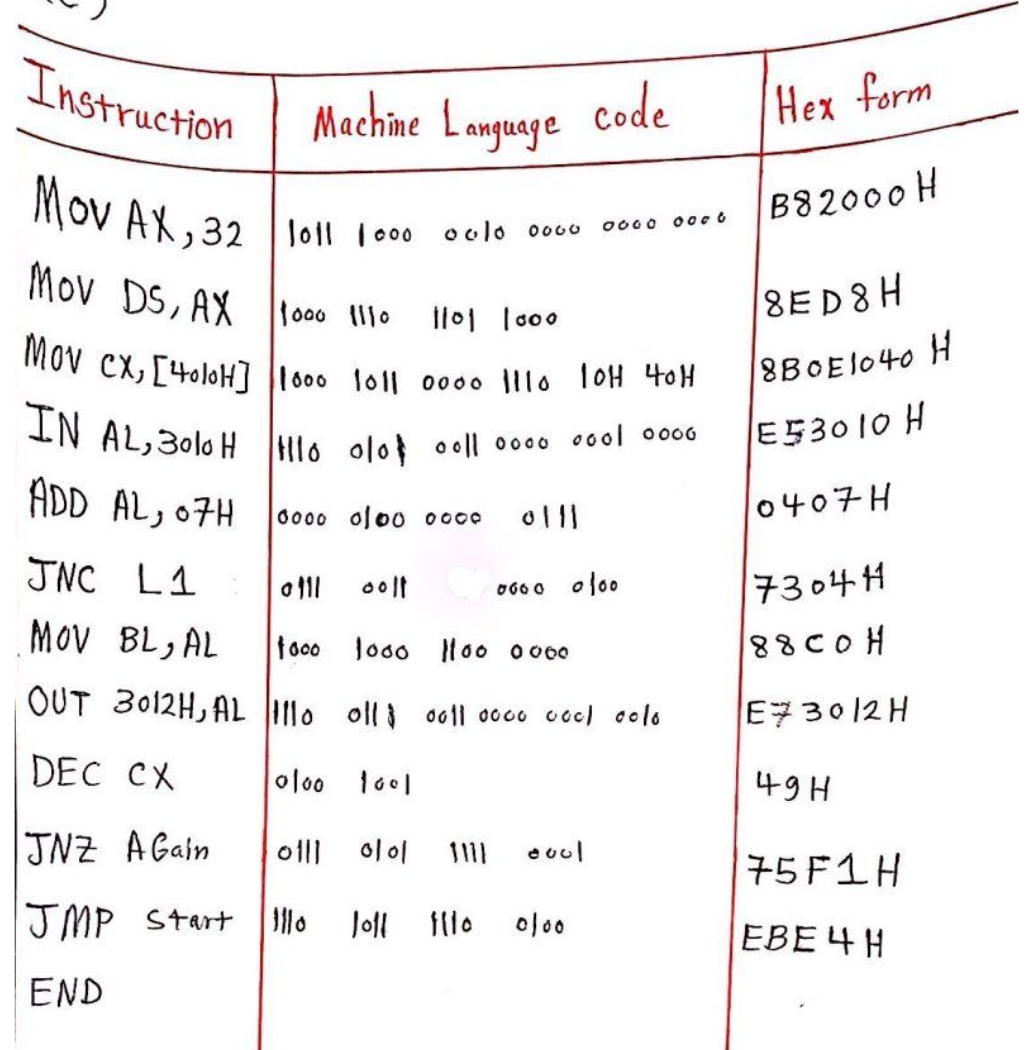 c)
Instruction Machine Language code Hex form
Mov AX, 32 1011 1000 0010 0000 0000 0000 B82000 H
Mov DS, AX 1000 1110 1101 1000 8ED8H
Mov CX, [4010H] 1000 1011 0000 1110 10H 40H 8B0E1040 H
IN AL, 3010H 1110 0101 0011 0000 0001 0000 E53010 H
ADD AL, 07H 0000 0100 0000 0111 0407H
JNC L1 0111 0011 0000 0100 7304H
MOV BL, AL 1000 1000 1100 0000 88C0H
OUT 3012H, AL 1110 0111 0011 0000 0001 0010 E73012H
DEC CX 0100 1001 49H
JNZ AGain 0111 0101 1111 0001 75F1H
JMP Start 1110 1011 1110 0100 EBE4H
END